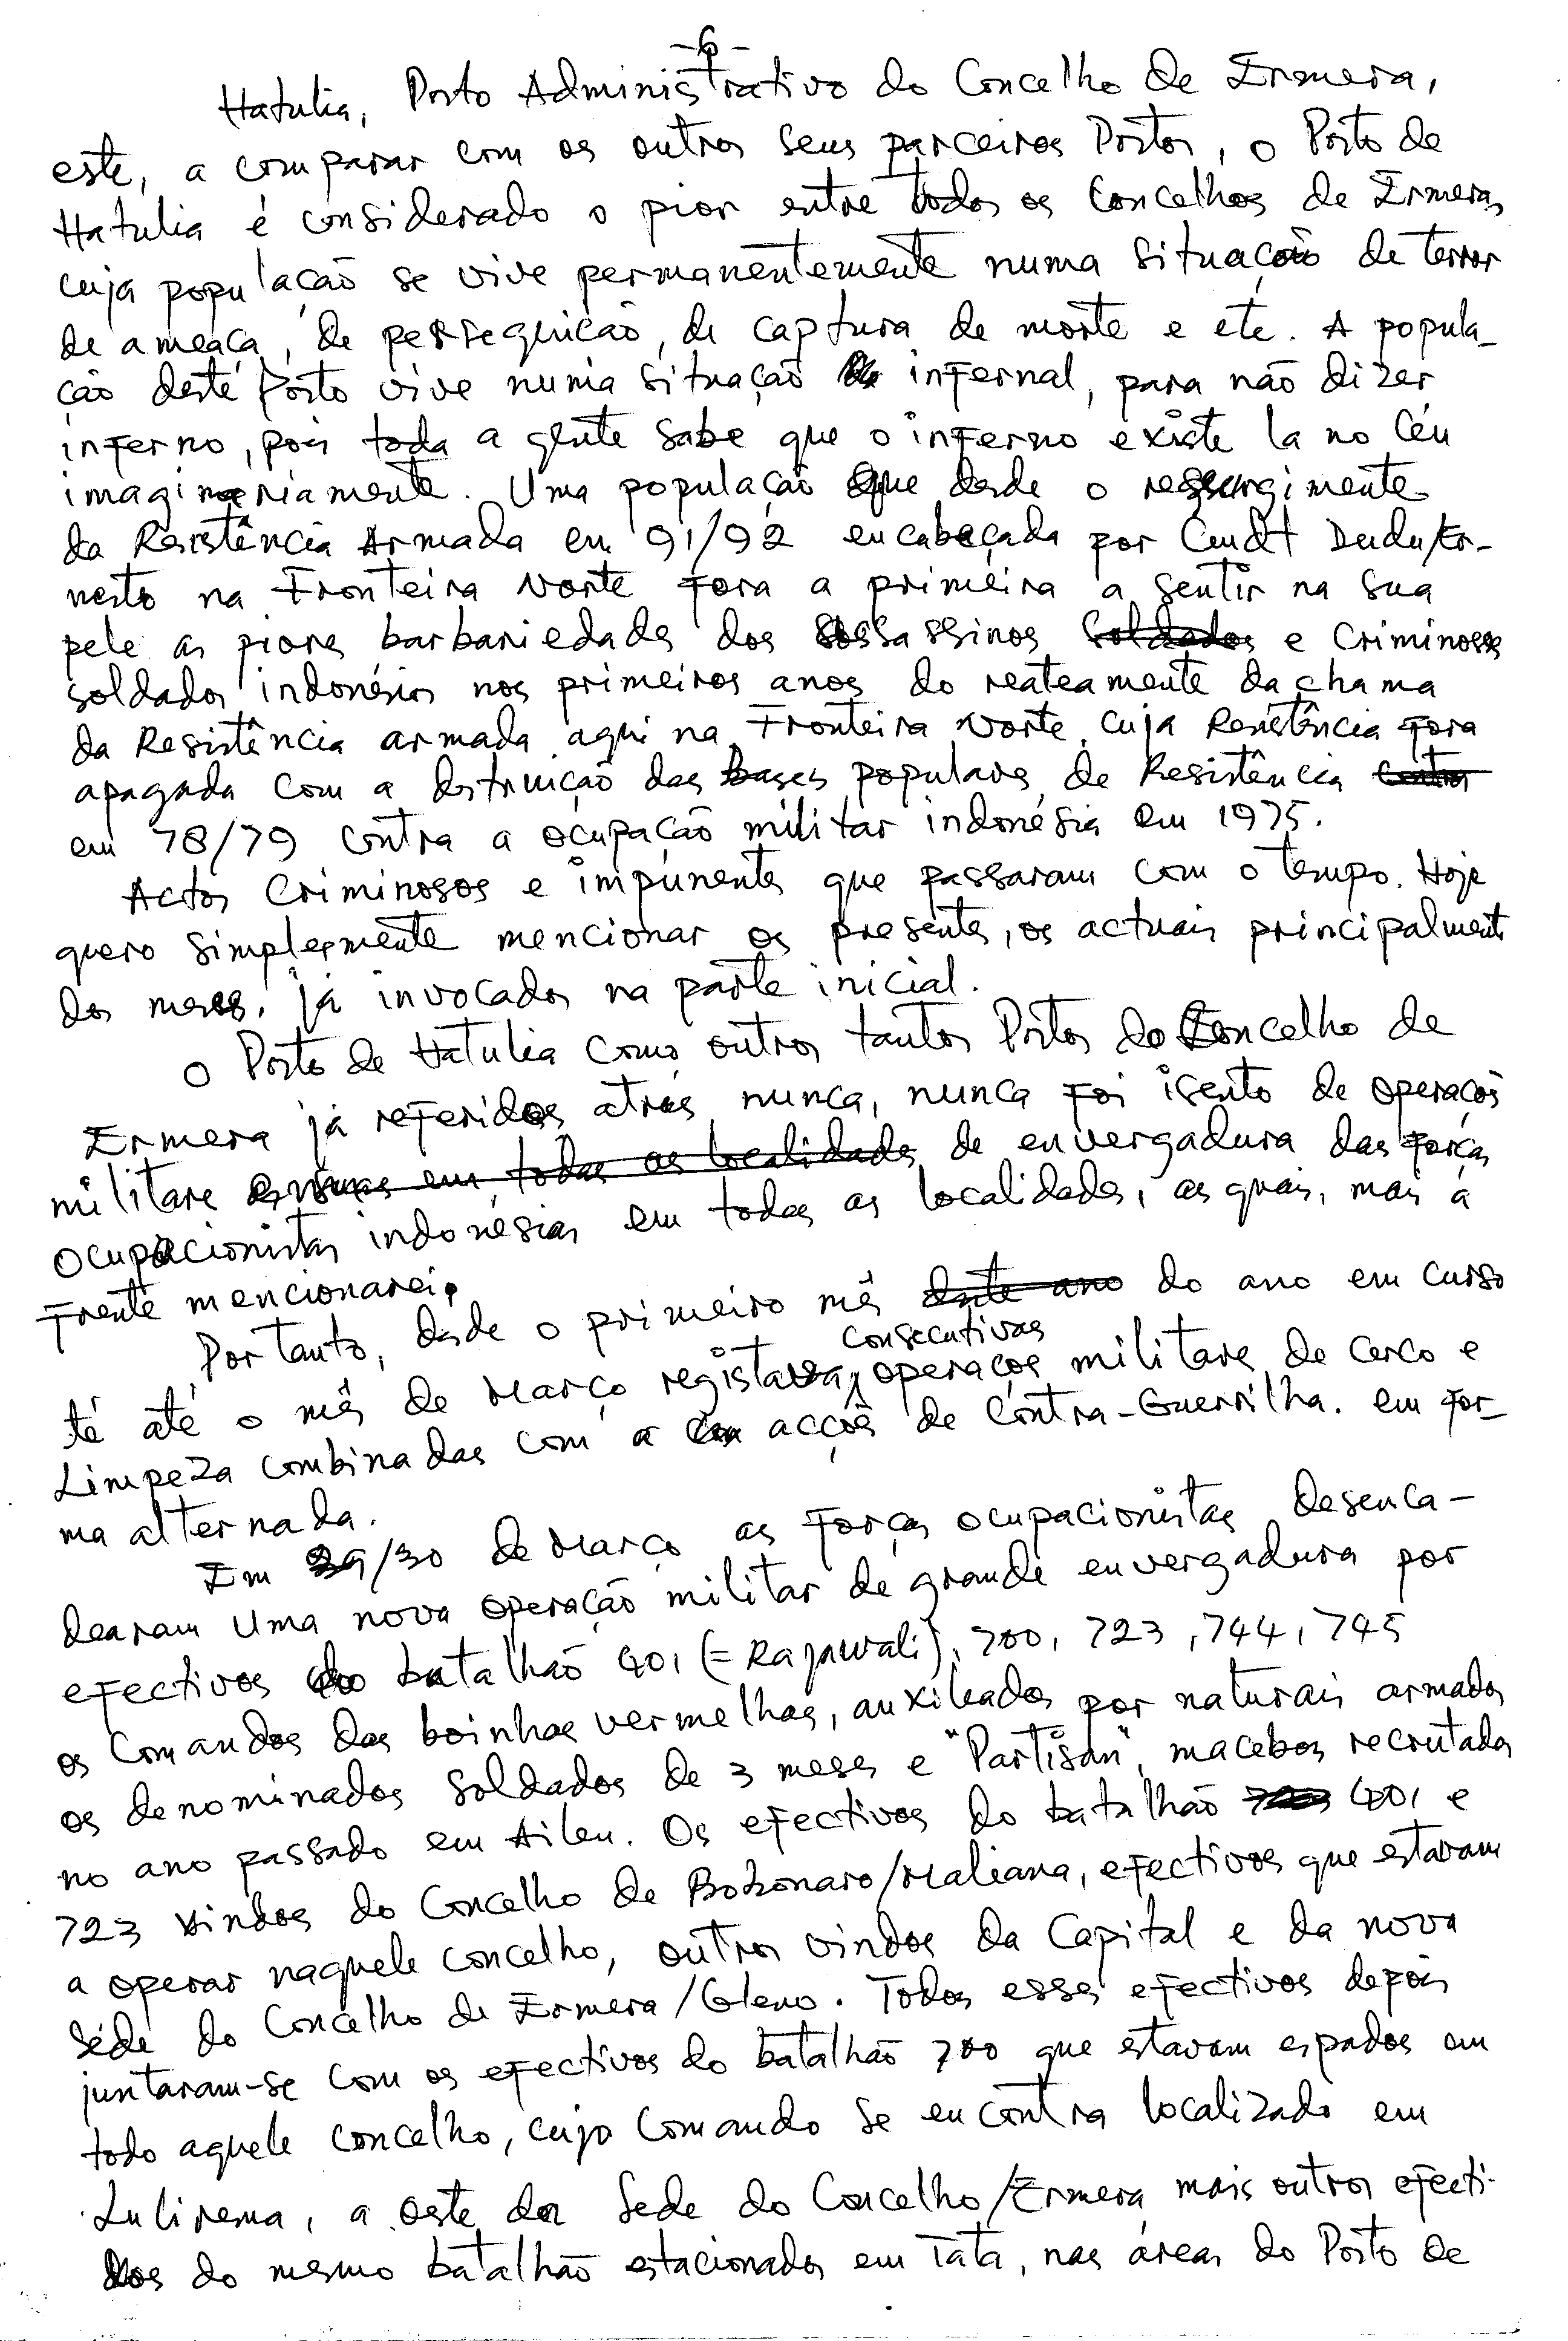 -6-
Hatulia, Posto Administrativo do Concelho de Ermera,
este, a comparar com os outros seus parceiros Postos, o Posto de
Hatulia é considerado o pior entre todos os Concelhos de Ermera,
cuja população se vive permanentemente numa situação de terror
de ameaça, de perseguição, de captura de morte e etc. A popula-
ção deste Posto vive numa situação infernal, para não dizer
inferno, pois toda a gente sabe que o inferno existe la no Céu
imaginariamente. Uma população que desde o ressurgimento
da Resistência Armada em 91/92 encabeçada por Cmdt Dudu/Er-
nesto na Fronteira Norte fora a primeira a sentir na sua
pele as piores barbariedades dos assassinos soldados e criminosos
soldados indonésios nos primeiros anos do reateamente da chama
da Resistência armada aqui na Fronteira Norte, cuja Resistência fora
apagada com a destruição das bases populares de Resistência contra
em 78/79 contra a ocupação militar indonésia em 1975.
Actos Criminosos e impúnentes que passaram com o tempo. Hoje
quero simplesmente mencionar os presentes, os actuais principalmente
dos meses, já invocados na parte inicial.
O Posto de Hatulia como outros tantos Postos do Concelho de
Ermera já referidos atrás nunca, nunca foi isento de operacos
militare em todas as localidades de envergadura das forças
ocupacionistas indonésias em todas as localidades, as quais, mais à
frente mencionarei.
Portanto, desde o primeiro mês deste ano do ano em curso
té até o mês de Março registava, consecutivas operacoes militares de cerco e
Limpeza combinadas com a acções de Contra-Guerrilha. em for-
ma alternada.
Em 29/30 de Março as forças ocupacionistas desenca-
dearam uma nova operação militar de grande envergadura por
efectivos do batalhão 401 (= Rajawali), 700, 723, 744, 745
os Comandos das boinhas vermelhas, auxileados por naturais armados
os denominados soldados de 3 meses e "Partisan" macebos recrutados
no ano passado em Aileu. Os efectivos do batalhão 401 e
723 vindos do Concelho de Bobonaro/Maliana, efectivos que estavam
a operar naquele concelho, outros vindos da Capital e da nova
séde do Concelho de Ermera/Gleno. Todos esses efectivos depois
juntaram-se com os efectivos do batalhão 700 que estavam espados em
todo aquele concelho, cujo Comando se encontra localizado em
Lulirema, a oeste da Sede do Concelho/Ermera, mais outros efecti-
vos do mesmo batalhão estacionados em Tata, nas áreas do Posto de